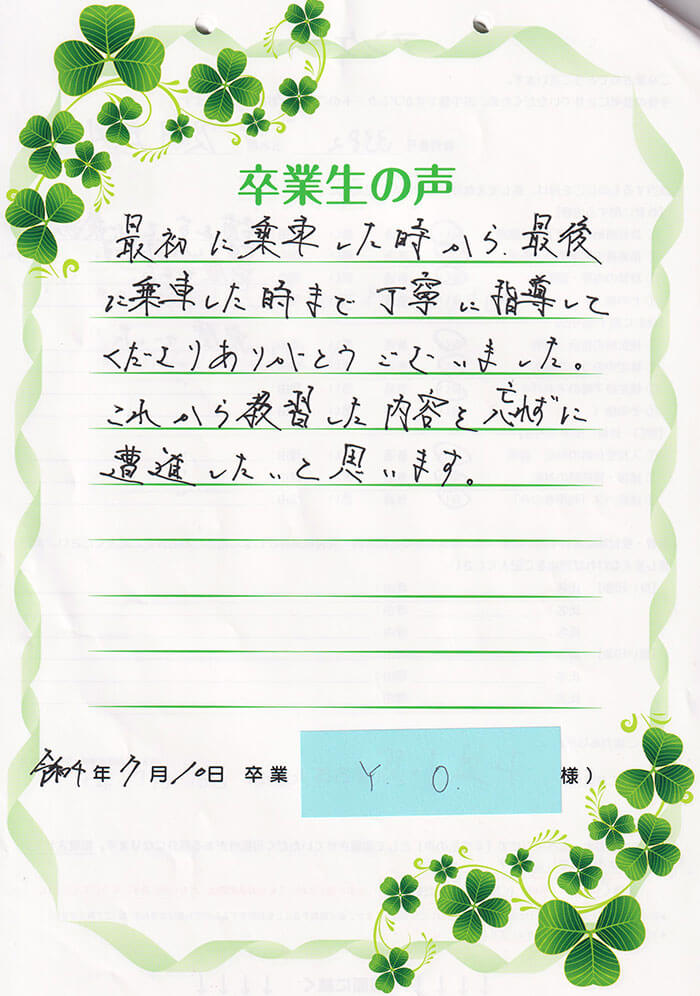 卒業生の声
最初に乗車した時から、最後
に乗車した時まで丁寧に指導して
くださりありがとうございました。
これから教習した内容を忘れずに
邁進したいと思います。
令和4年7月10日 卒業 Y. O. 様)